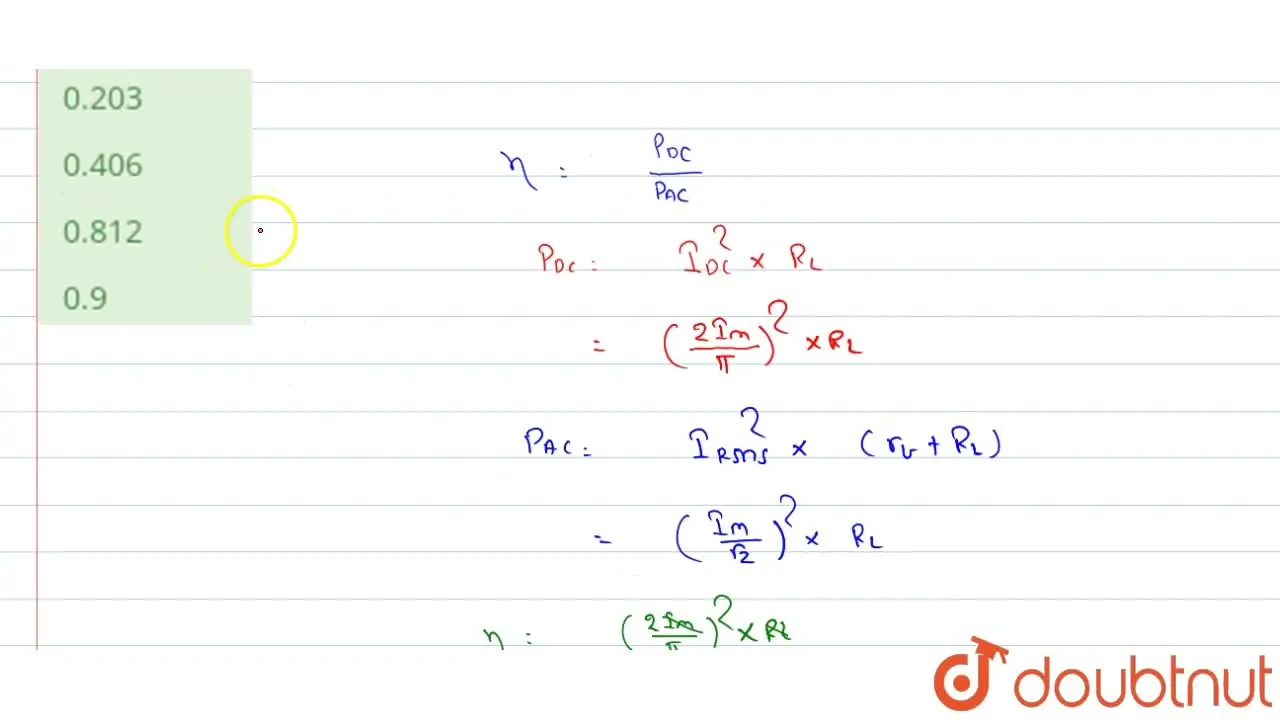 0.203
0.406
0.812
0.9
η = P_DC / P_AC
P_DC = I_DC² × R_L
= (2Im/π)² × R_L
P_AC = I_RMS² × (r_f + R_L)
= (Im/√2)² × R_L
η = (2Im/π)² × R_L
doubtnut